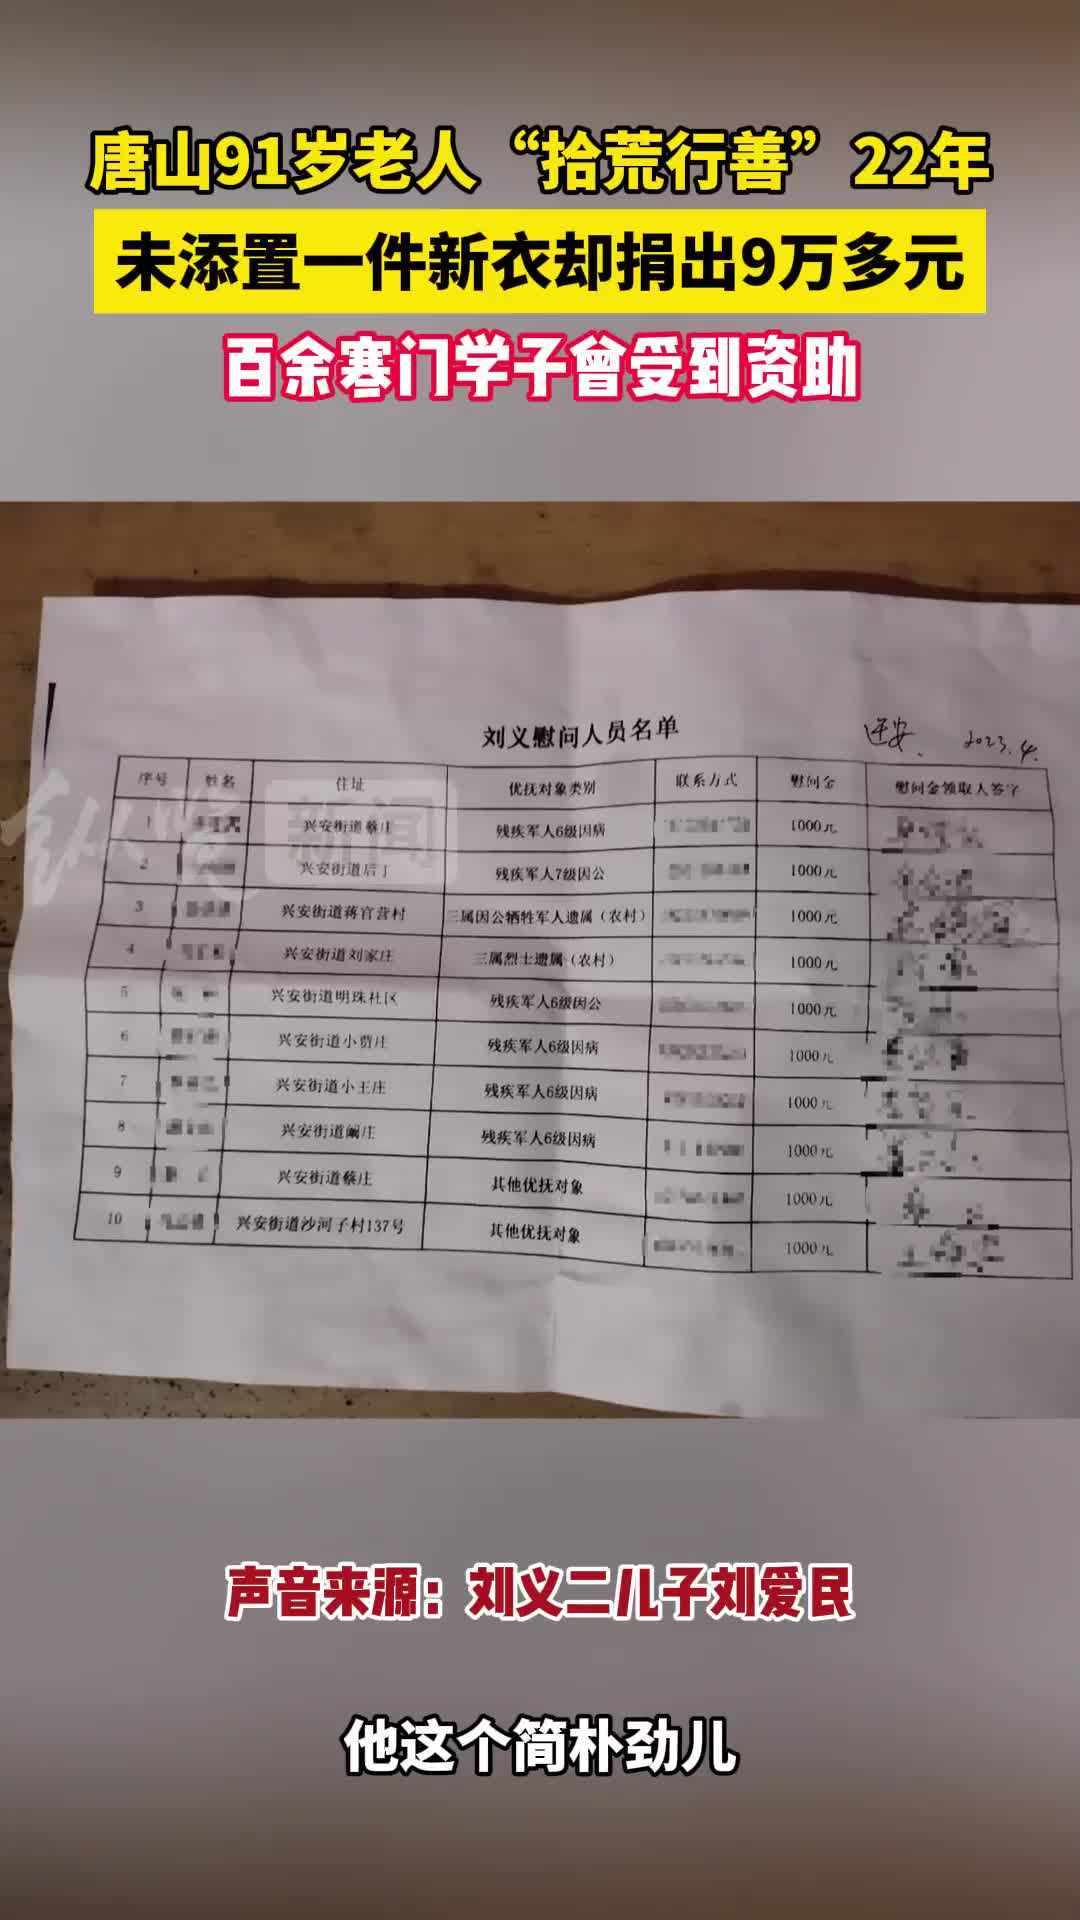 唐山91岁老人“拾荒行善”22年
未添置一件新衣却捐出9万多元
百余寒门学子曾受到资助
刘义慰问人员名单
迁安. 2023.4.
序号 姓名 住址 优抚对象类别 联系方式 慰问金 慰问金领取人签字
1 兴安街道蔡庄 残疾军人6级因病 1000元
2 兴安街道后丁 残疾军人7级因公 1000元
3 兴安街道蒋官营村 三属因公牺牲军人遗属（农村） 1000元
4 兴安街道刘家庄 三属烈士遗属（农村） 1000元
5 兴安街道明珠社区 残疾军人6级因公 1000元
6 兴安街道小贾庄 残疾军人6级因病 1000元
7 兴安街道小王庄 残疾军人6级因病 1000元
8 兴安街道阚庄 残疾军人6级因病 1000元
9 兴安街道蔡庄 其他优抚对象 1000元
10 兴安街道沙河子村137号 其他优抚对象 1000元
纵览新闻
声音来源：刘义二儿子刘爱民
他这个简朴劲儿